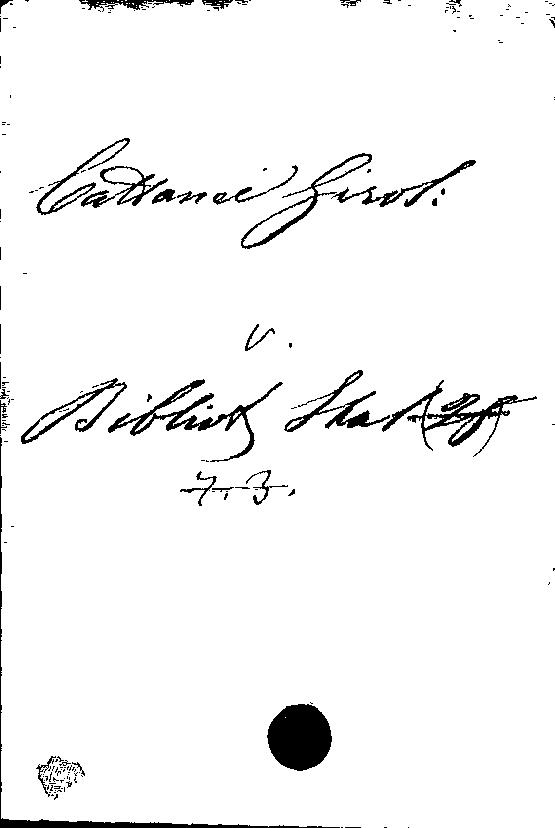 Cattanei Girol:
v.
Biblioth Skat (2f)
7. 3.